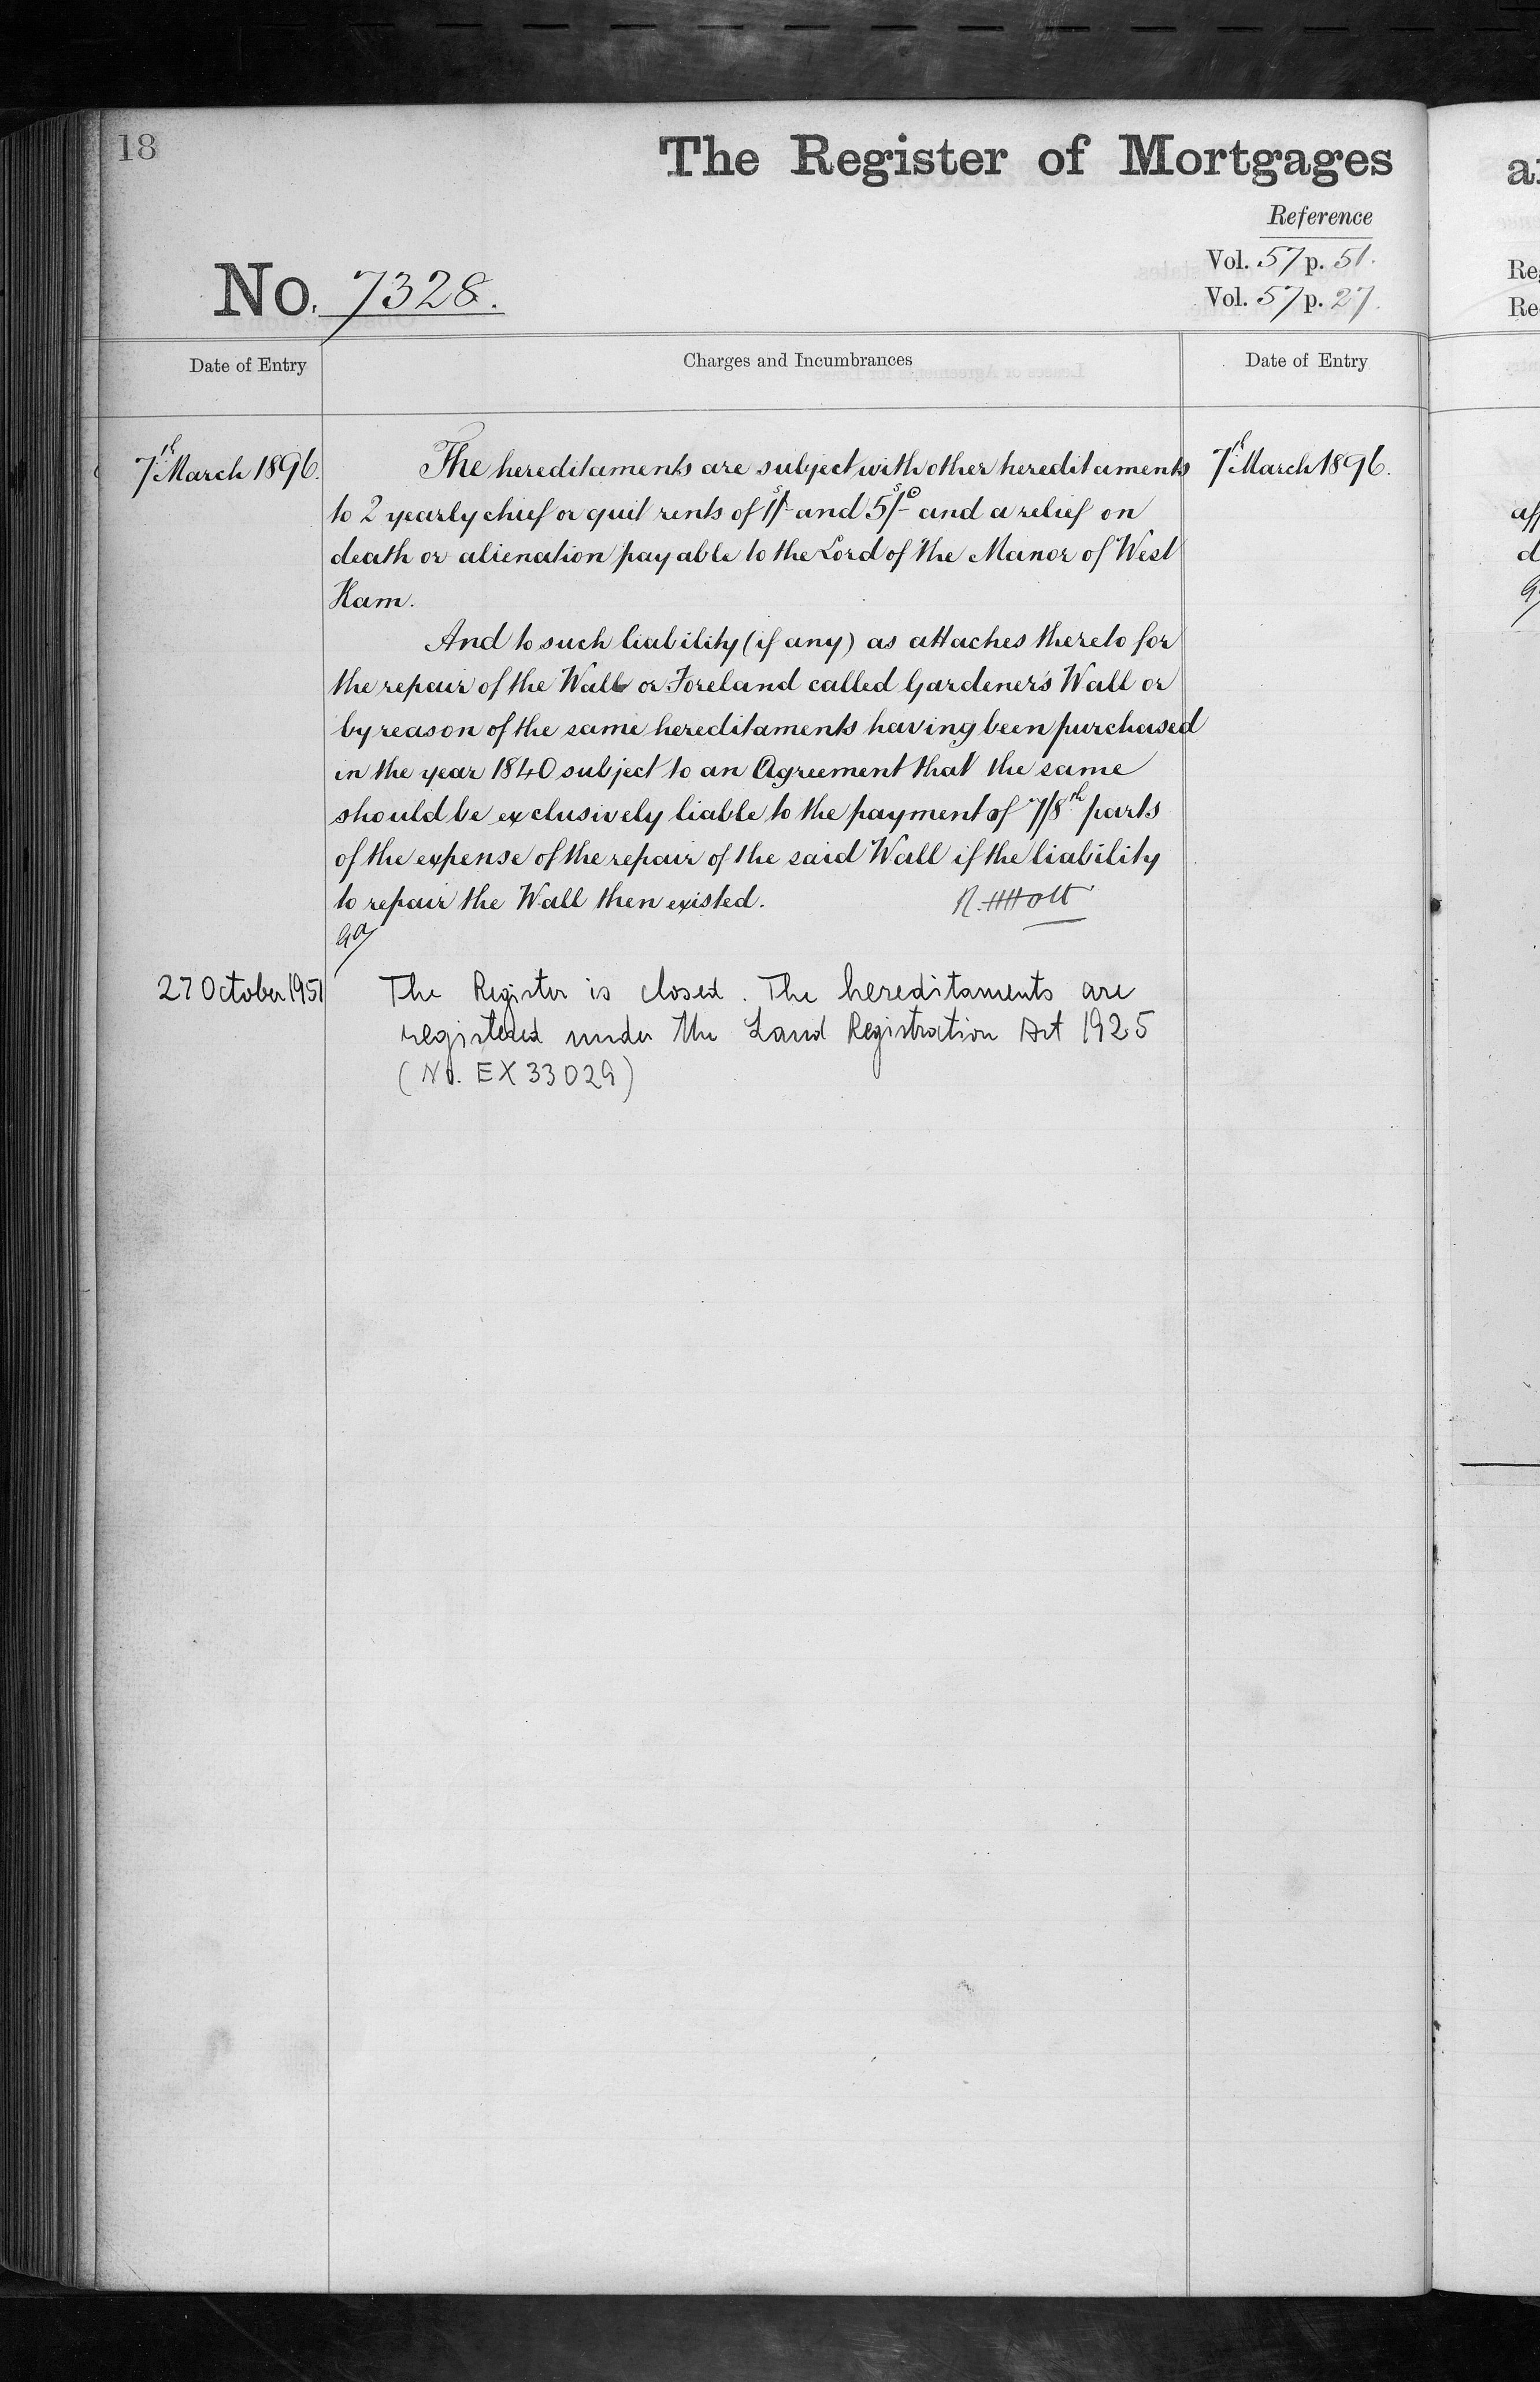 18
The Register of Mortgages
Reference
Vol. 57 p. 51.
No. 7328.
Vol. 57 p. 27.
Date of Entry
Charges and Incumbrances
Date of Entry
7th March 1896.
The hereditaments are subject with other hereditaments
7th March 1896.
to 2 yearly chief or quit rents of and and a relief on
death or alienation payable to the Lord of the Manor of West
Ham.
And to such liability (if any) as attaches thereto for
the repair of the Wall or Foreland called Gardener's Wall or
by reason of the same hereditaments having been purchased
in the year 1840 subject to an Agreement that the same
should be exclusively liable to the payment of 7/8th parts
of the expense of the repair of the said Wall if the liability
to repair the Wall then existed. R. H. Holt
27 October 1951
The Register is closed. The hereditaments are
registered under the Land Registration Act 1925
(No. EX 33029)